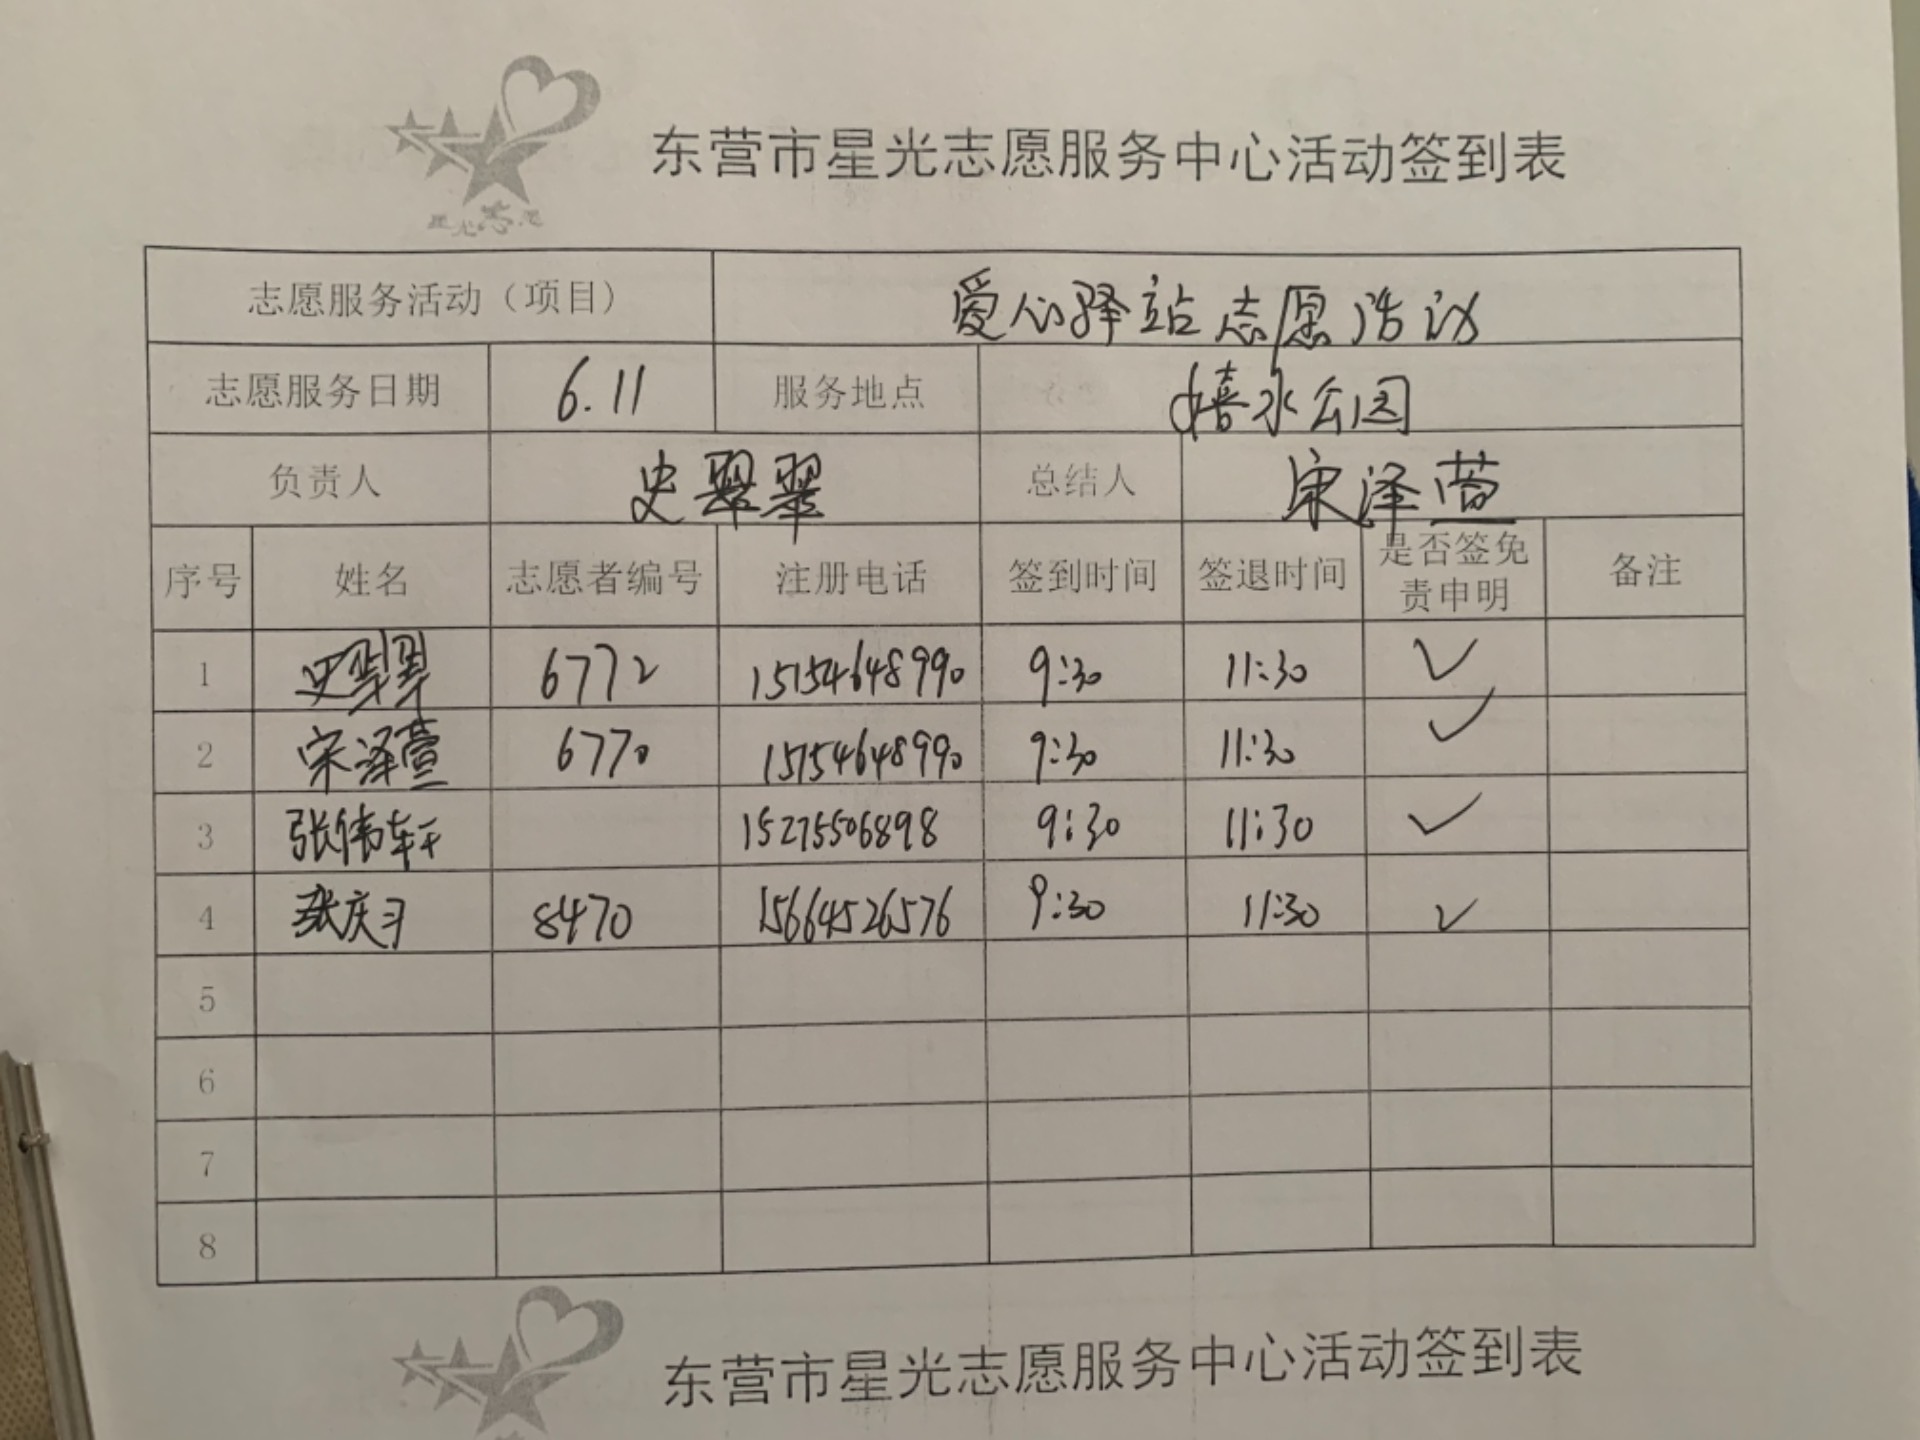 星光志愿
东营市星光志愿服务中心活动签到表
志愿服务活动（项目） 爱心驿站志愿活动
志愿服务日期 6.11 服务地点 嬉水公园
负责人 史翠翠 总结人 宋泽萱
序号 姓名 志愿者编号 注册电话 签到时间 签退时间 是否签免责申明 备注
1 史翠翠 6772 15154648990 9:30 11:30 ✓
2 宋泽萱 6770 15154648990 9:30 11:30 ✓
3 张伟轩 15275506898 9:30 11:30 ✓
4 张庆 8470 15664526576 9:30 11:30 ✓
5
6
7
8
东营市星光志愿服务中心活动签到表